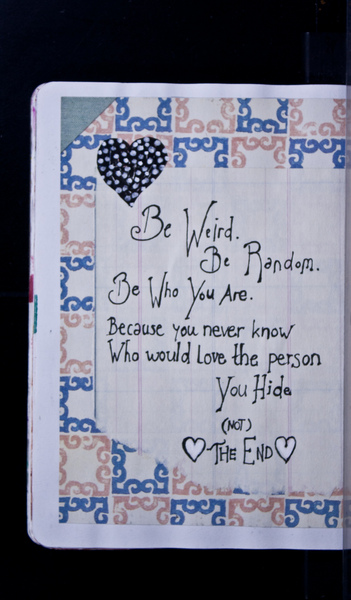 Be Weird.
Be Random.
Be Who You Are.
Because you never know
Who would love the person
You Hide
(NOT)
THE END